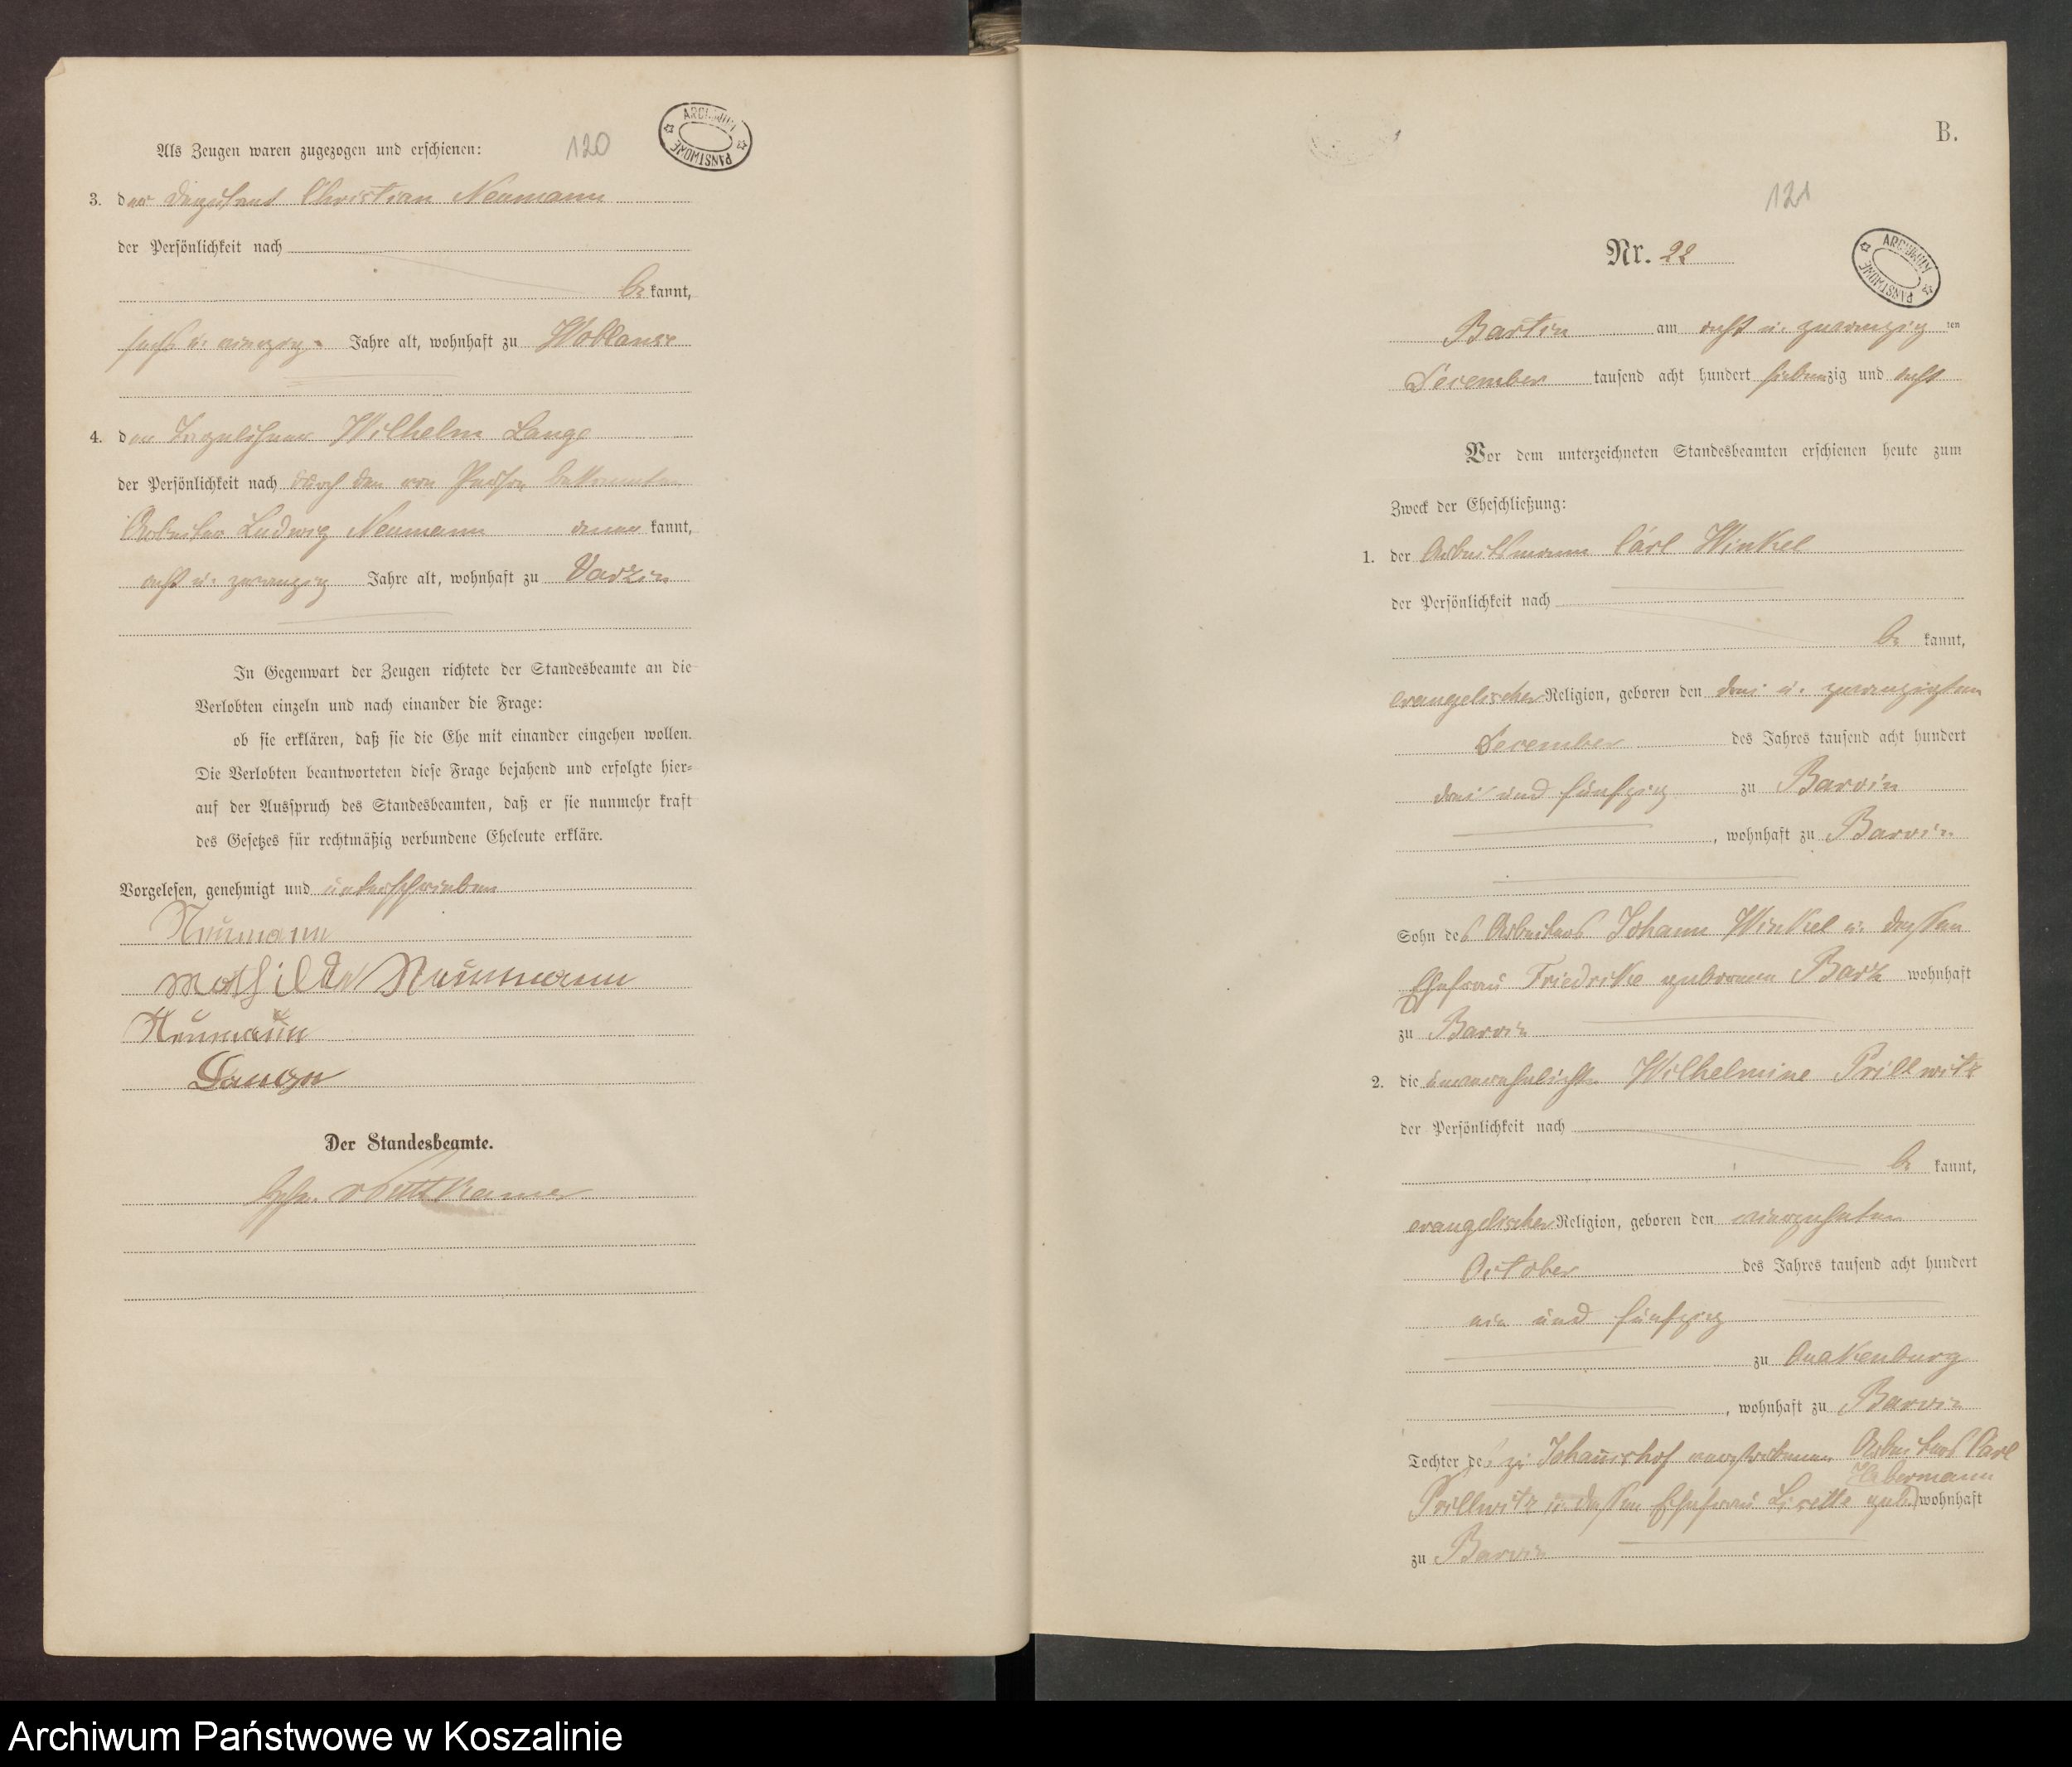 120
ARCHIWUM PAŃSTWOWE
Als Zeugen waren zugezogen und erschienen:
3. der Christian Neumann
der Persönlichkeit nach
bekannt,
sechs u. vierzig Jahre alt, wohnhaft zu Woblanse
4. der Tagelöhner Wilhelm Lange
der Persönlichkeit nach durch den von Person bekannten
Arbeiter Ludwig Neumann anerkannt,
acht u. zwanzig Jahre alt, wohnhaft zu Varzin
In Gegenwart der Zeugen richtete der Standesbeamte an die
Verlobten einzeln und nach einander die Frage:
ob sie erklären, daß sie die Ehe mit einander eingehen wollen.
Die Verlobten beantworteten diese Frage bejahend und erfolgte hier-
auf der Ausspruch des Standesbeamten, daß er sie nunmehr kraft
des Gesetzes für rechtmäßig verbundene Eheleute erkläre.
Vorgelesen, genehmigt und unterschrieben
Neumann
Mathilde Neumann
Neumann
Lange
Der Standesbeamte.
v Puttkamer
B.
121
Nr. 22
ARCHIWUM PAŃSTWOWE
Bartin am acht u. zwanzig ten
December tausend acht hundert siebenzig und acht
Vor dem unterzeichneten Standesbeamten erschienen heute zum
Zweck der Eheschließung:
1. der Arbeitsmann Carl Winkel
der Persönlichkeit nach
be kannt,
evangelischer Religion, geboren den drei u. zwanzigsten
December des Jahres tausend acht hundert
drei und fünfzig zu Barvin
, wohnhaft zu Barvin
Sohn des Arbeiters Johann Winkel u. dessen
Ehefrau Friedrike geborenen Barz wohnhaft
zu Barvin
2. die unverehelichte Wilhelmine Prillwitz
der Persönlichkeit nach
be kannt,
evangelischer Religion, geboren den vierzehnten
October des Jahres tausend acht hundert
ein und fünfzig
zu Quakenburg
, wohnhaft zu Barvin
Tochter des zu Johannishof verstorbenen Arbeiters Carl
Habermann
Prillwitz u. dessen Ehefrau Lisette geb. wohnhaft
zu Barvin
Archiwum Państwowe w Koszalinie